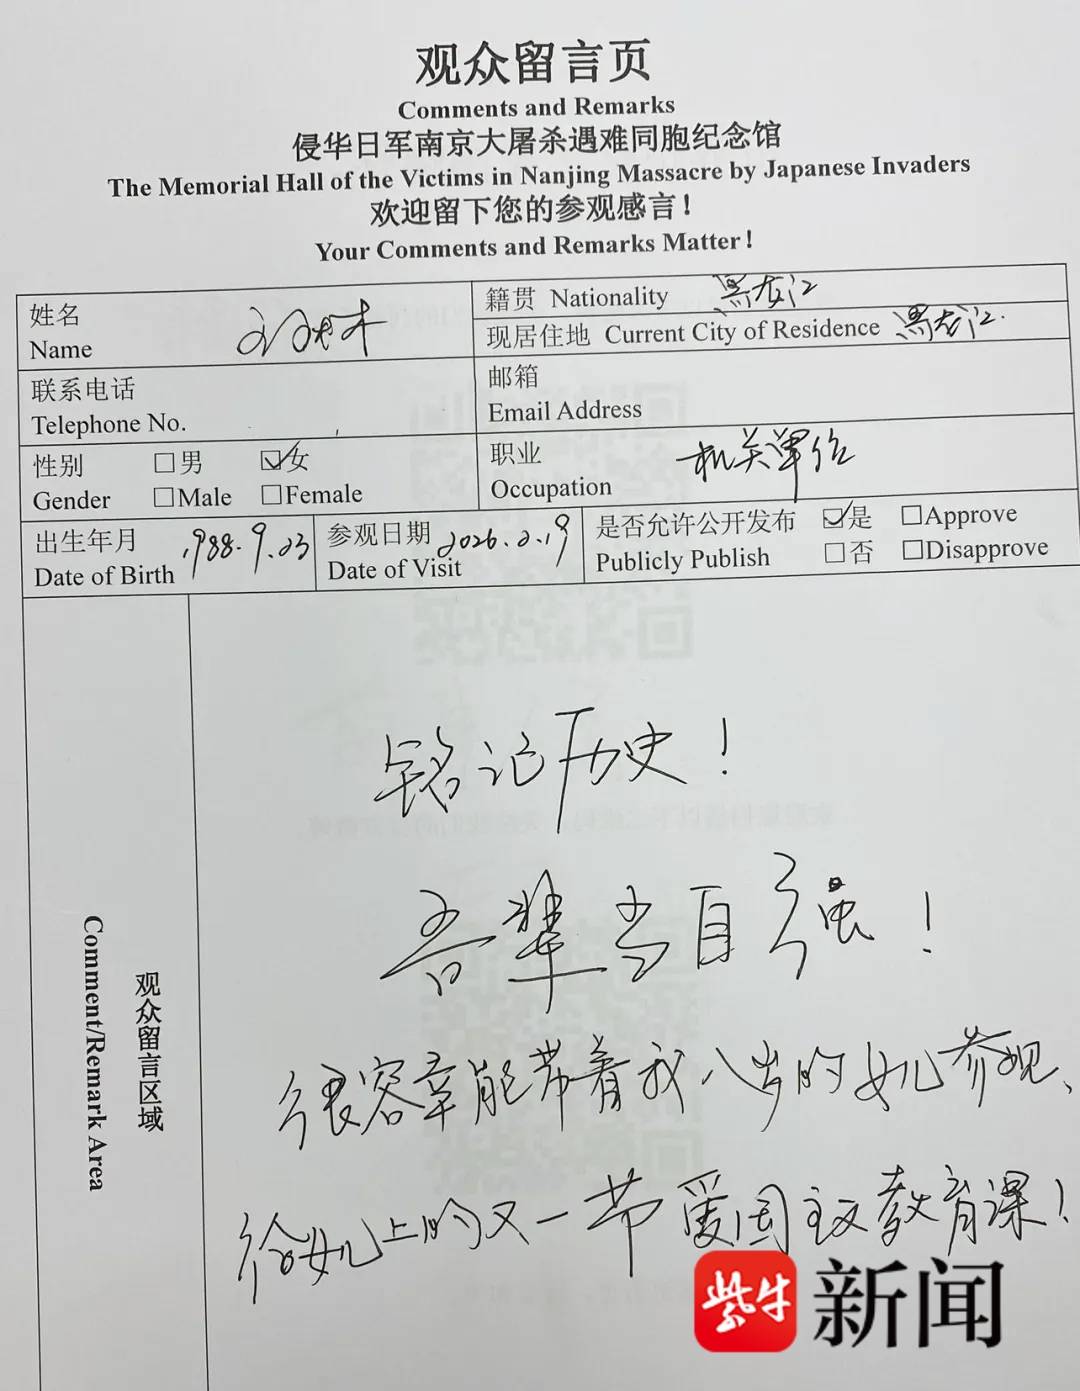 观众留言页
Comments and Remarks
侵华日军南京大屠杀遇难同胞纪念馆
The Memorial Hall of the Victims in Nanjing Massacre by Japanese Invaders
欢迎留下您的参观感言！
Your Comments and Remarks Matter！
姓名
Name
籍贯 Nationality 黑龙江
现居住地 Current City of Residence 黑龙江.
联系电话
Telephone No.
邮箱
Email Address
性别 □男 ☑女
Gender □Male □Female
职业 机关单位
Occupation
出生年月 1988.9.23
Date of Birth
参观日期 2026.2.19
Date of Visit
是否允许公开发布 ☑是 □Approve
Publicly Publish □否 □Disapprove
观众留言区域
Comment/Remark Area
铭记历史！
吾辈当自强！
很容幸能带着我八岁的女儿参观、
给女儿上的又一节爱国主义教育课！
紫牛新闻